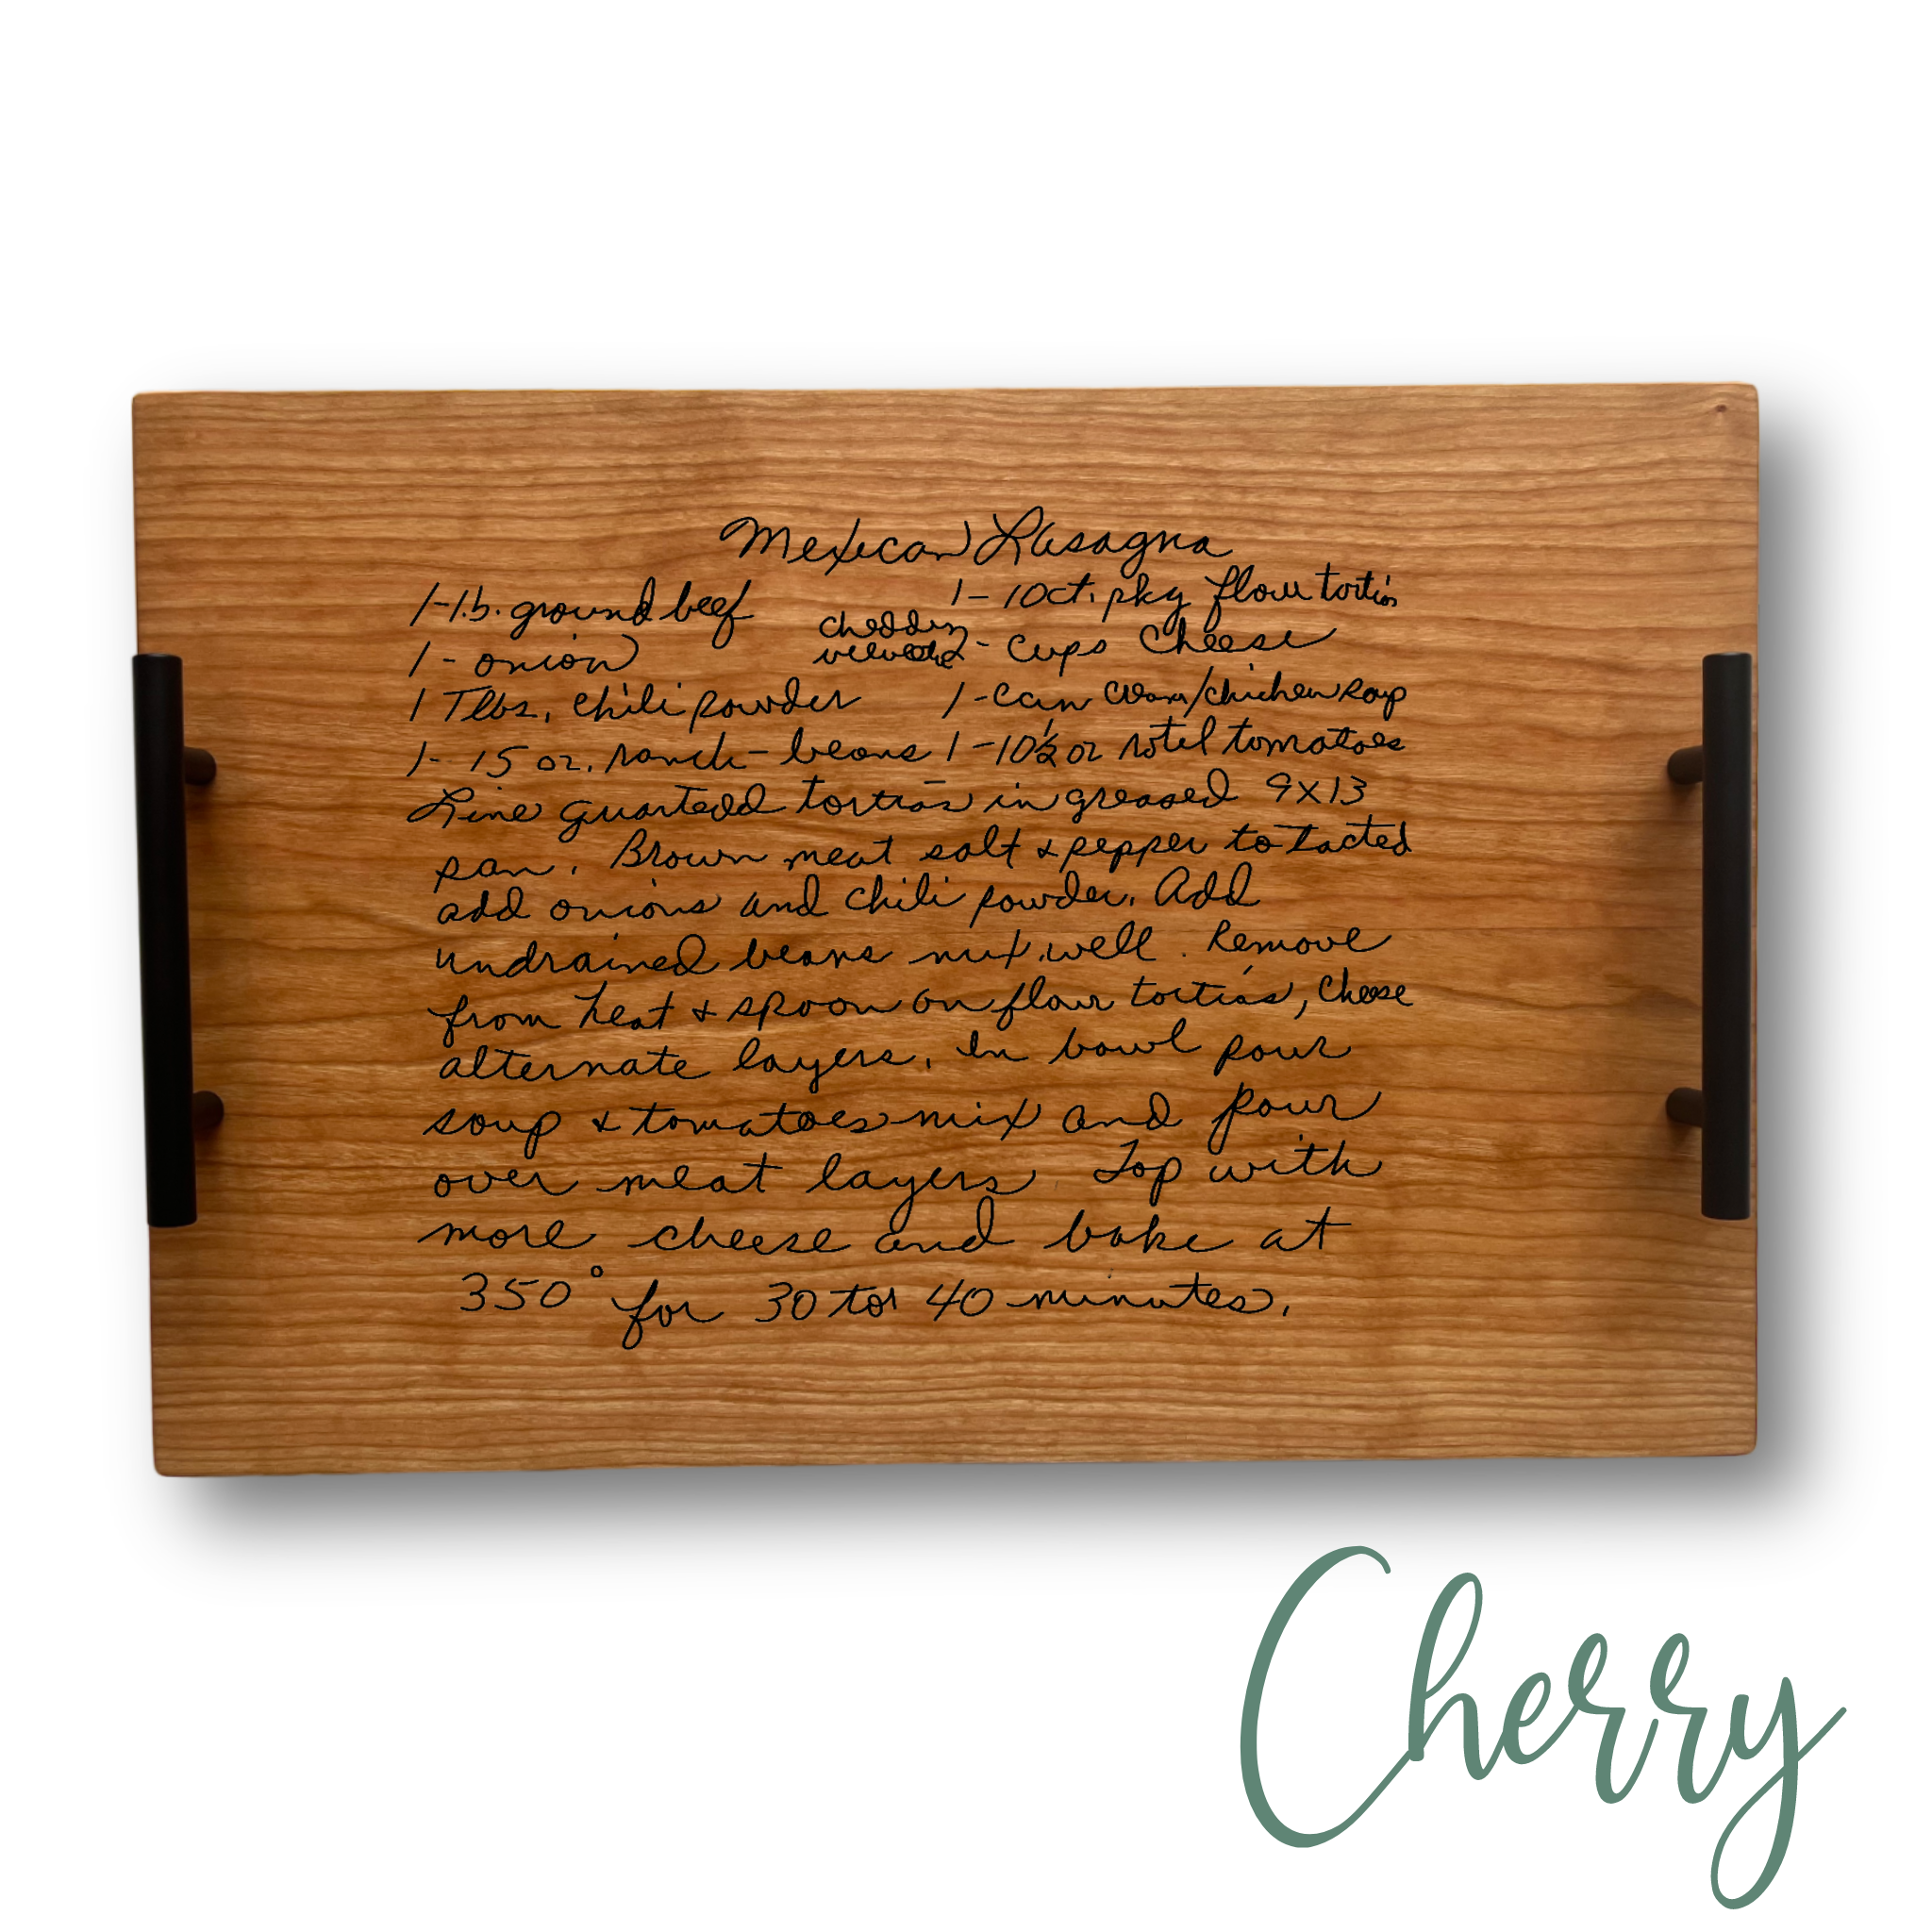 Mexican Lasagna
1-lb. ground beef 1-10ct. pkg flour tortias
1 - onion cheddar velveeta 2 - cups cheese
1 Tlbs. chili powder 1-can cream/chicken soup
1- 15 oz. ranch-beans 1-10½ oz rotel tomatoes
Line quartedd tortias in greased 9x13
pan. Brown meat salt & pepper to tasted
add onions and chili powder. Add
undrained beans mix well. Remove
from heat & spoon on flour tortias, cheese
alternate layers. In bowl pour
soup & tomatoes mix and pour
over meat layers Top with
more cheese and bake at
350° for 30 to 40 minutes.
Cherry